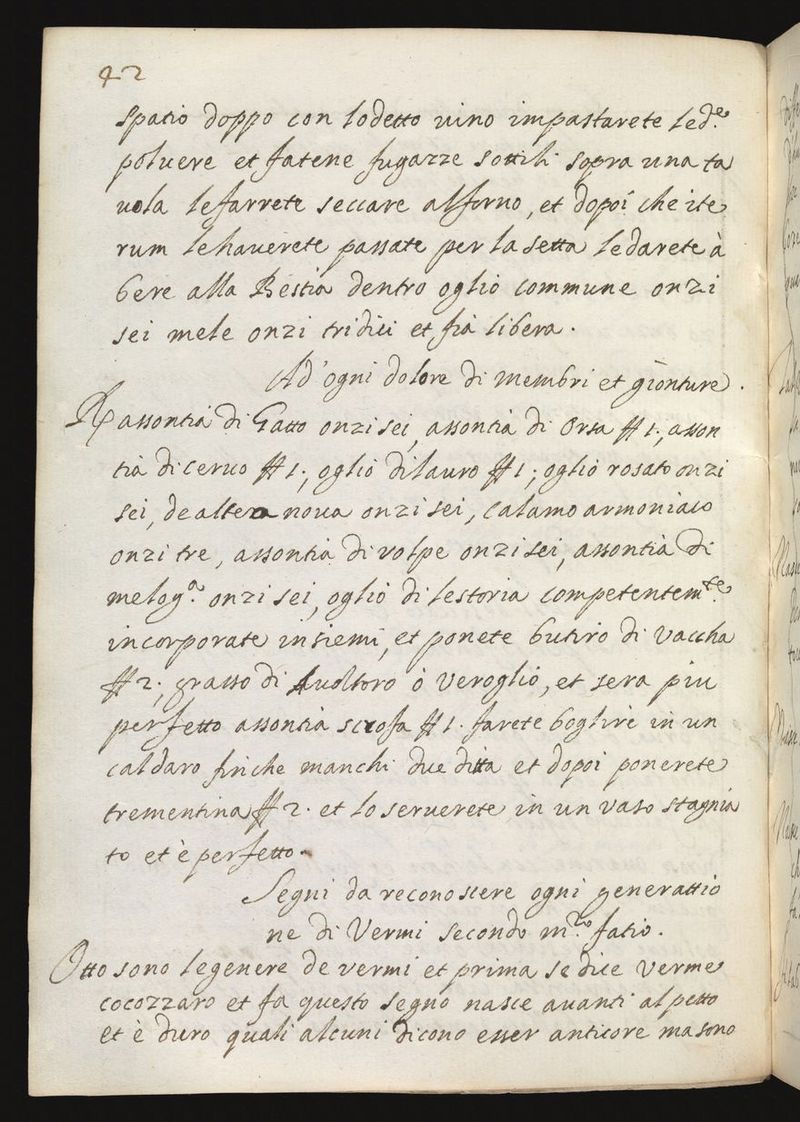 42
spatio doppo con lodetto vino impastarete led.e
poluere et fatene fugazze sottili sopra una ta
uola lefarrete seccare alforno, et dopoi che ite
rum lehauerete passate per la setta ledarete à
bere alla Bestia dentro oglio commune onzi
sei mele onzi tridici et fia libera.
Ad'ogni dolore di membri et gionture.
R assontia di Gatto onzi sei, assontia di Orsa ℔ 1., asson
tia di ceruo ℔ 1., oglio dilauro ℔ 1; oglio rosato onzi
sei, dealtera noua onzi sei, calamo armoniaco
onzi tre, assontia di volpe onzi sei, assontia di
melog.a onzi sei, oglio di lestoria competentem.te
incorporate insiemi, et ponete butiro di vaccha
℔ 2., grasso di Auoltoro ò veroglio, et sera piu
perfetto assontia scrofa ℔ 1. farete boglire in un
caldaro finche manchi due ditta et dopoi ponerete
trementina ℔ 2. et lo seruerete in un vaso stagnia
to et è perfetto.
Segni da reconoscere ogni generattio
ne di Vermi secondo m.ro fatio.
Otto sono legenere de vermi et prima se dice verme
cocozzaro et fa questo segno nasce auanti al petto
et è duro quali alcuni dicono esser anticore ma sono